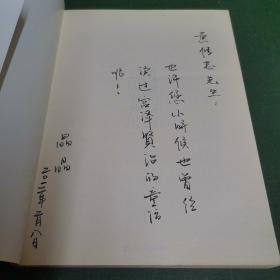 黄恒志先生：
也许您小时候也曾经
读过宫泽賢治的童话
怡！
晶晶
二〇二二年二月八日